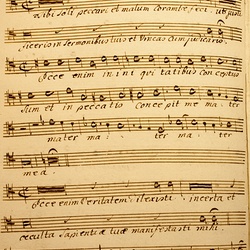 tibi soli peccavi et malum coram te feci ut just
ficeris in sermonibus tuis et vincas cum judicaris.
Ecce enim in ini qui tatibus conceptus
sum et in peccatis conce pit me ma ter
mater ma ter ma ter
mea.
Ecce enim Veritatem dilexisti incerta et
occulta sapientiæ tuæ manifestasti mihi.